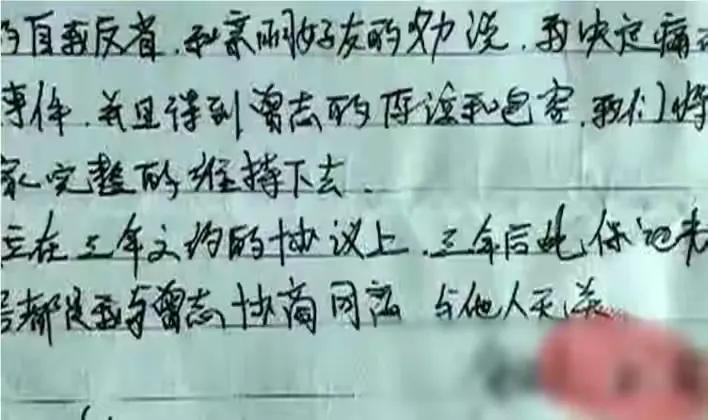 的自我反省.和亲朋好友的劝说.我决定痛
事件.并且得到曾志的原谅和包容.我们将
家完整的维持下去.
立在三年之约的协议上.三年后此保证书
都是我与曾志协商同意 与他人无关